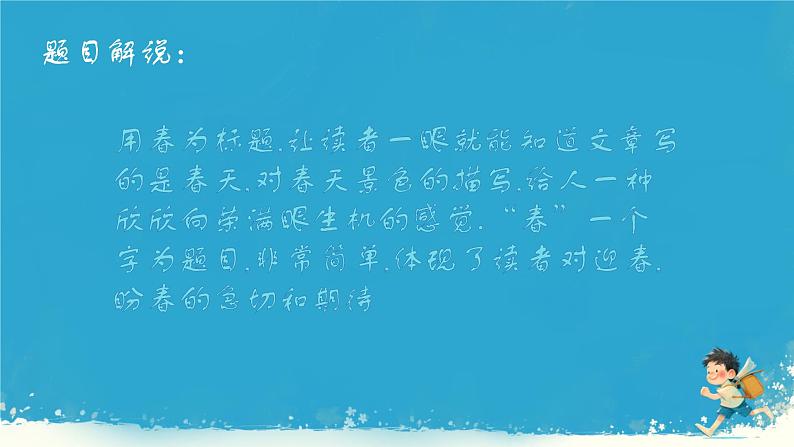 题目解说：
用春为标题.让读者一眼就能知道文章写
的是春天.对春天景色的描写.给人一种
欣欣向荣满眼生机的感觉.“春”一个
字为题目.非常简单.体现了读者对迎春.
盼春的急切和期待